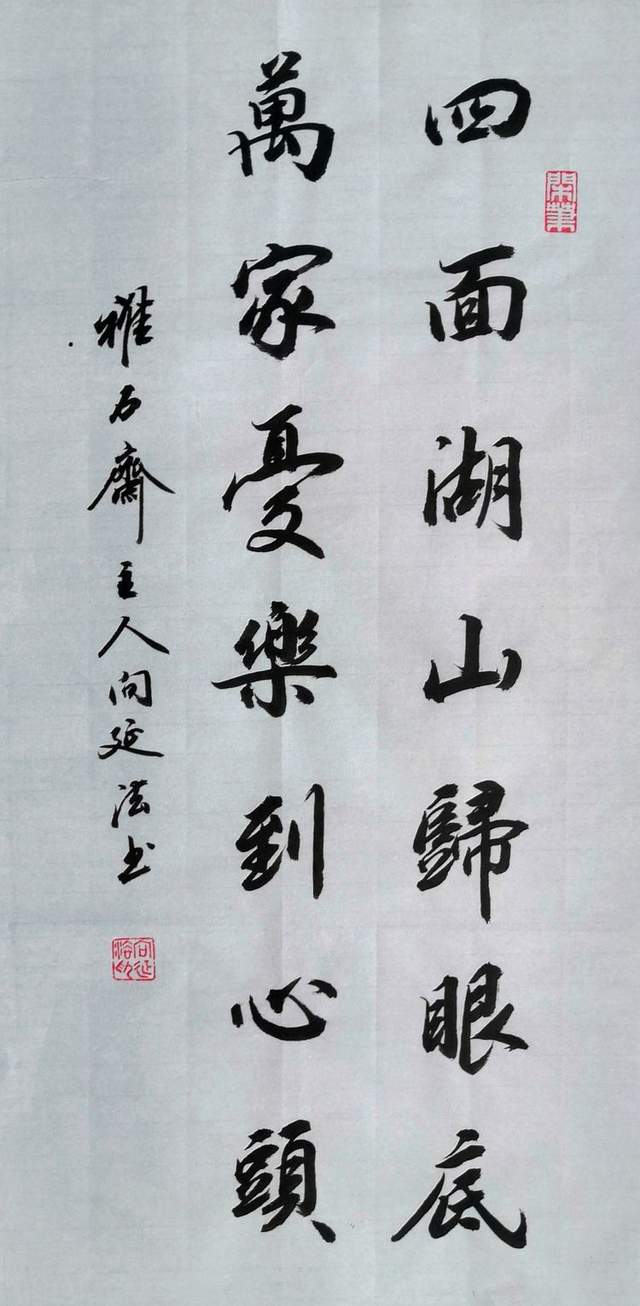 四面湖山歸眼底
萬家憂樂到心頭
雅石齋主人向延法书
閑筆